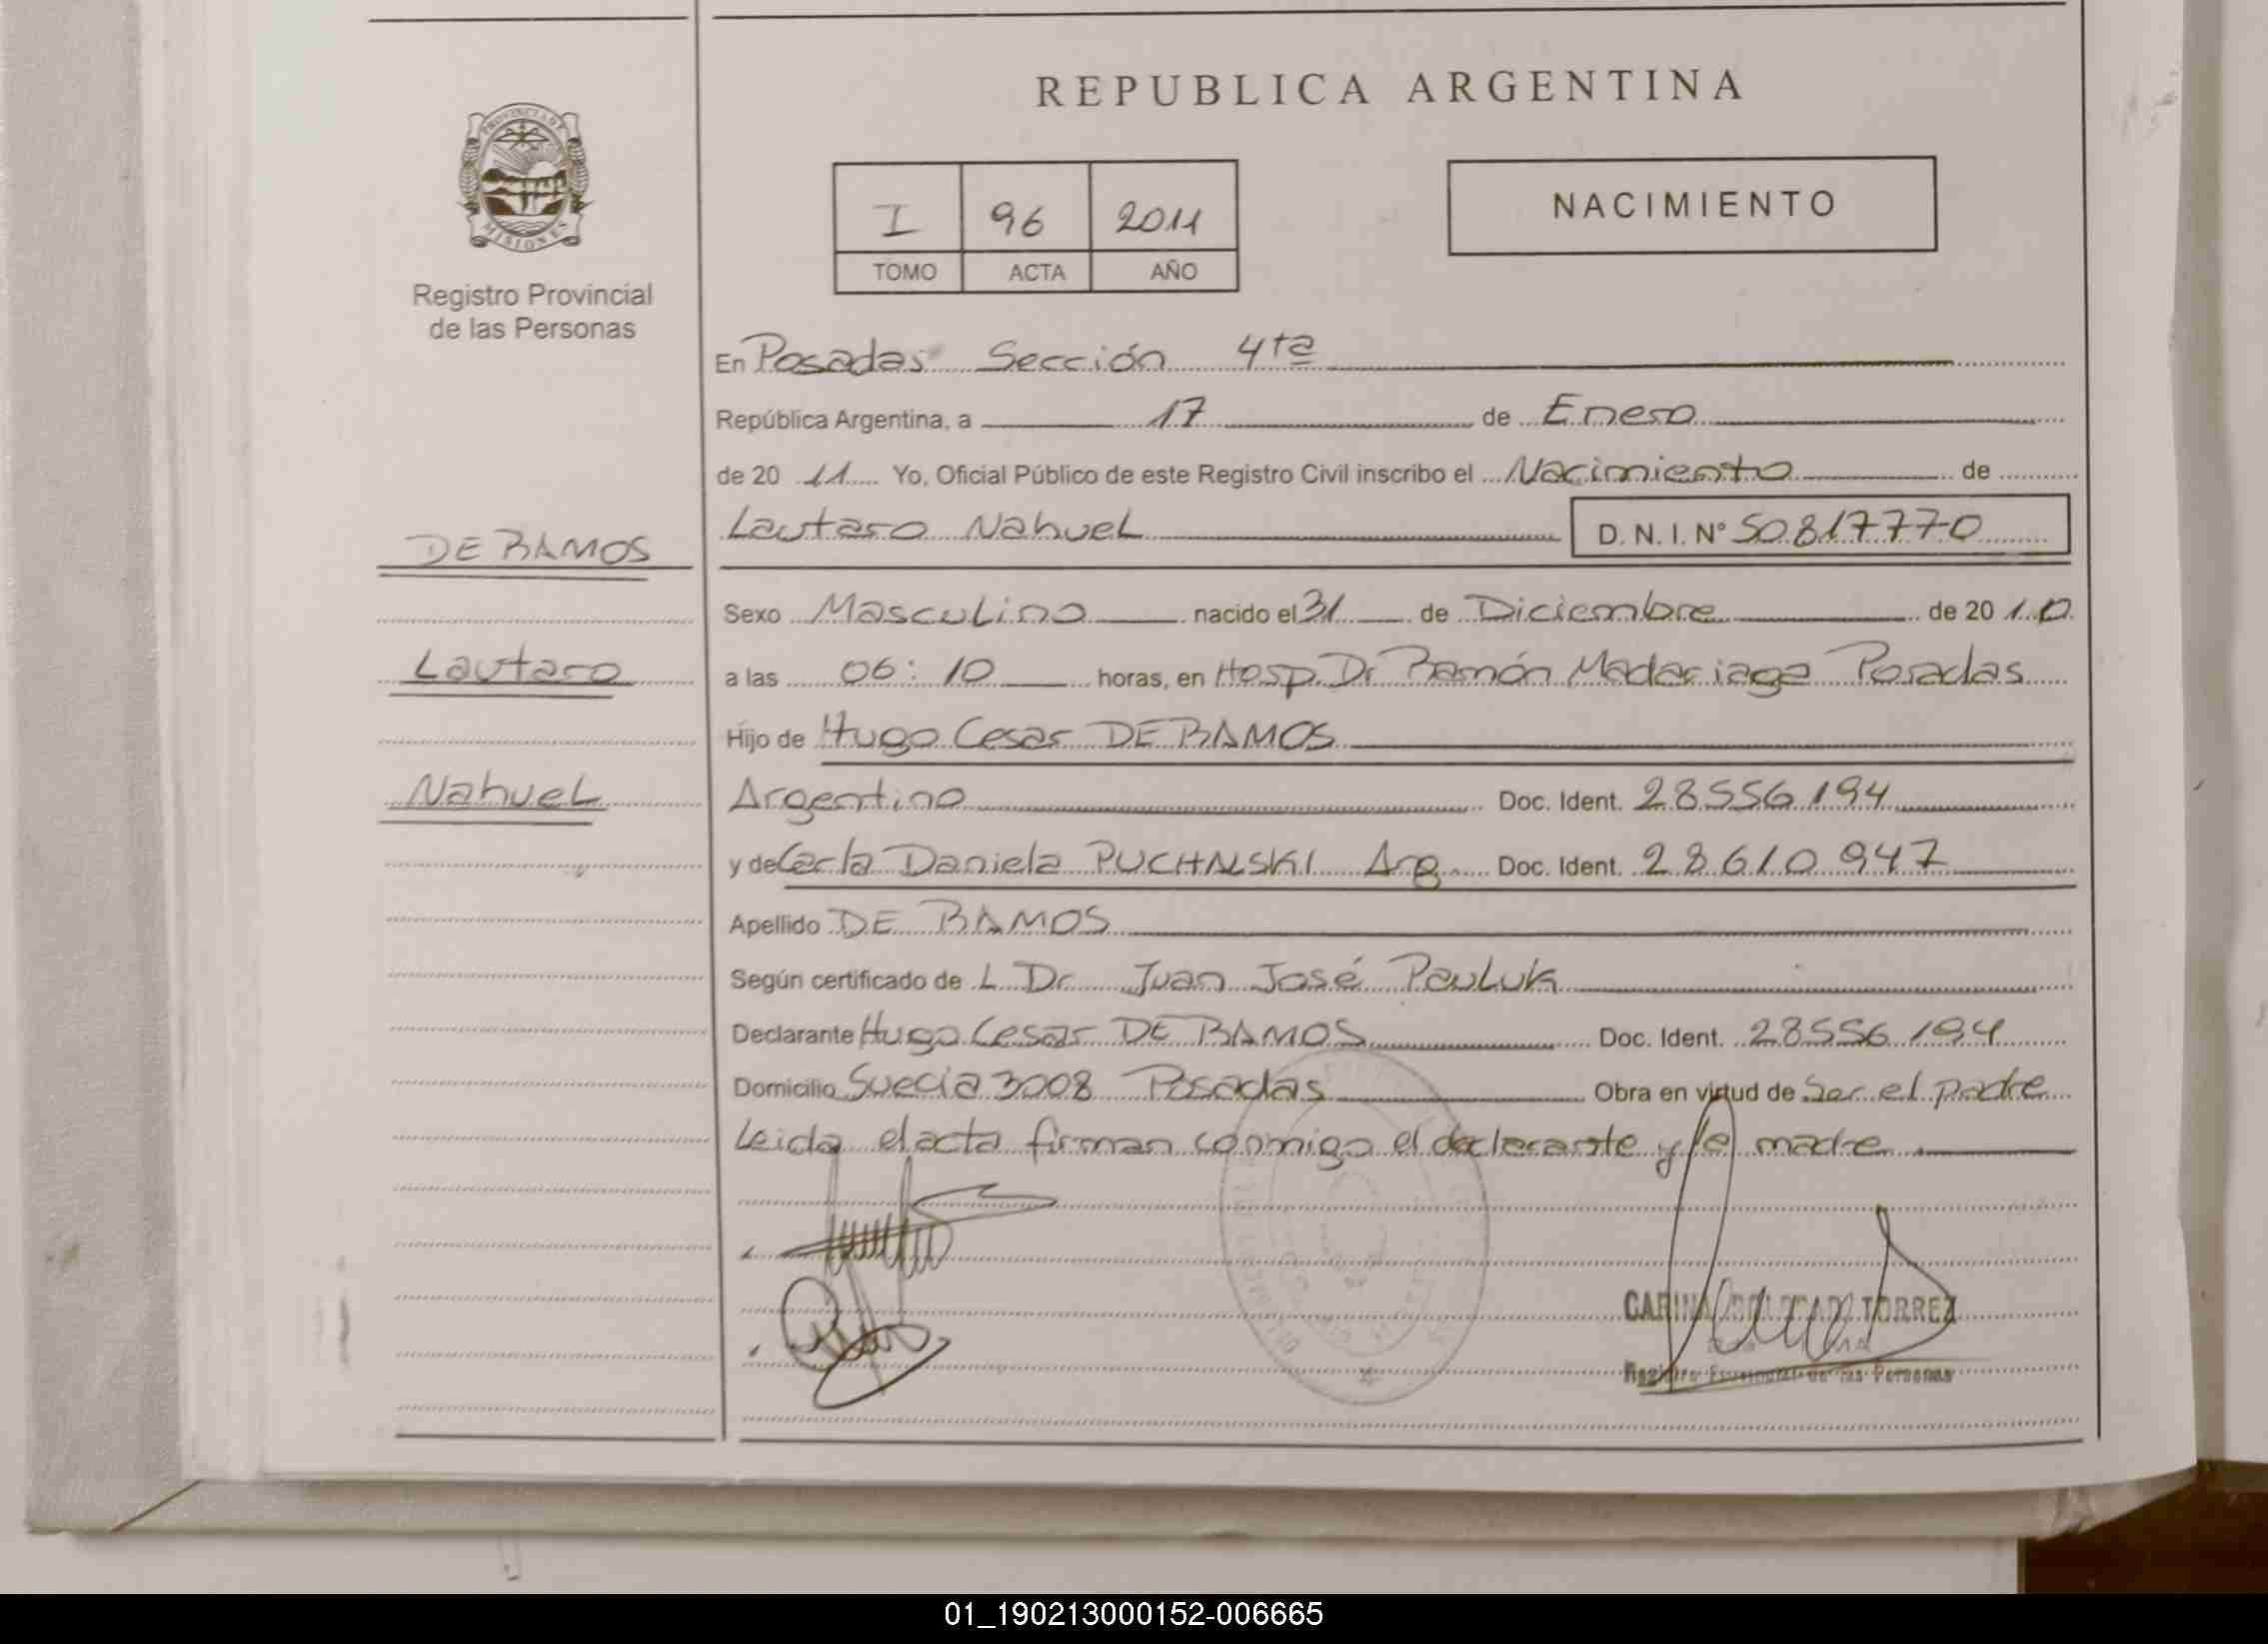 REPUBLICA ARGENTINA
PROVINCIA DE
MISIONES
Registro Provincial
de las Personas
I 96 2011
TOMO ACTA AÑO
NACIMIENTO
En Posadas Sección 4ta
República Argentina, a 17 de Enero
de 20 11 Yo, Oficial Público de este Registro Civil inscribo el Nacimiento de
DE RAMOS
Lautaro Nahuel D. N. I. Nº 50.817.770
Sexo Masculino nacido el 31 de Diciembre de 20 10
Lautaro
a las 06:10 horas, en Hosp. Dr Ramón Madariaga Posadas
Hijo de Hugo Cesar DE RAMOS
Nahuel
Argentino Doc. Ident. 28.556.194
y de Carla Daniela PUCHALSKI Arg. Doc. Ident. 28.610.947
Apellido DE RAMOS
Según certificado de L Dr. Juan José Pauluk
Declarante Hugo Cesar DE RAMOS Doc. Ident. 28.556.194
Domicilio Suecia 3008 Posadas Obra en virtud de Ser el padre
Leida el acta firman conmigo el declarante y la madre.
CARINA TORREZ
Registro Provincial de las Personas
01_190213000152-006665